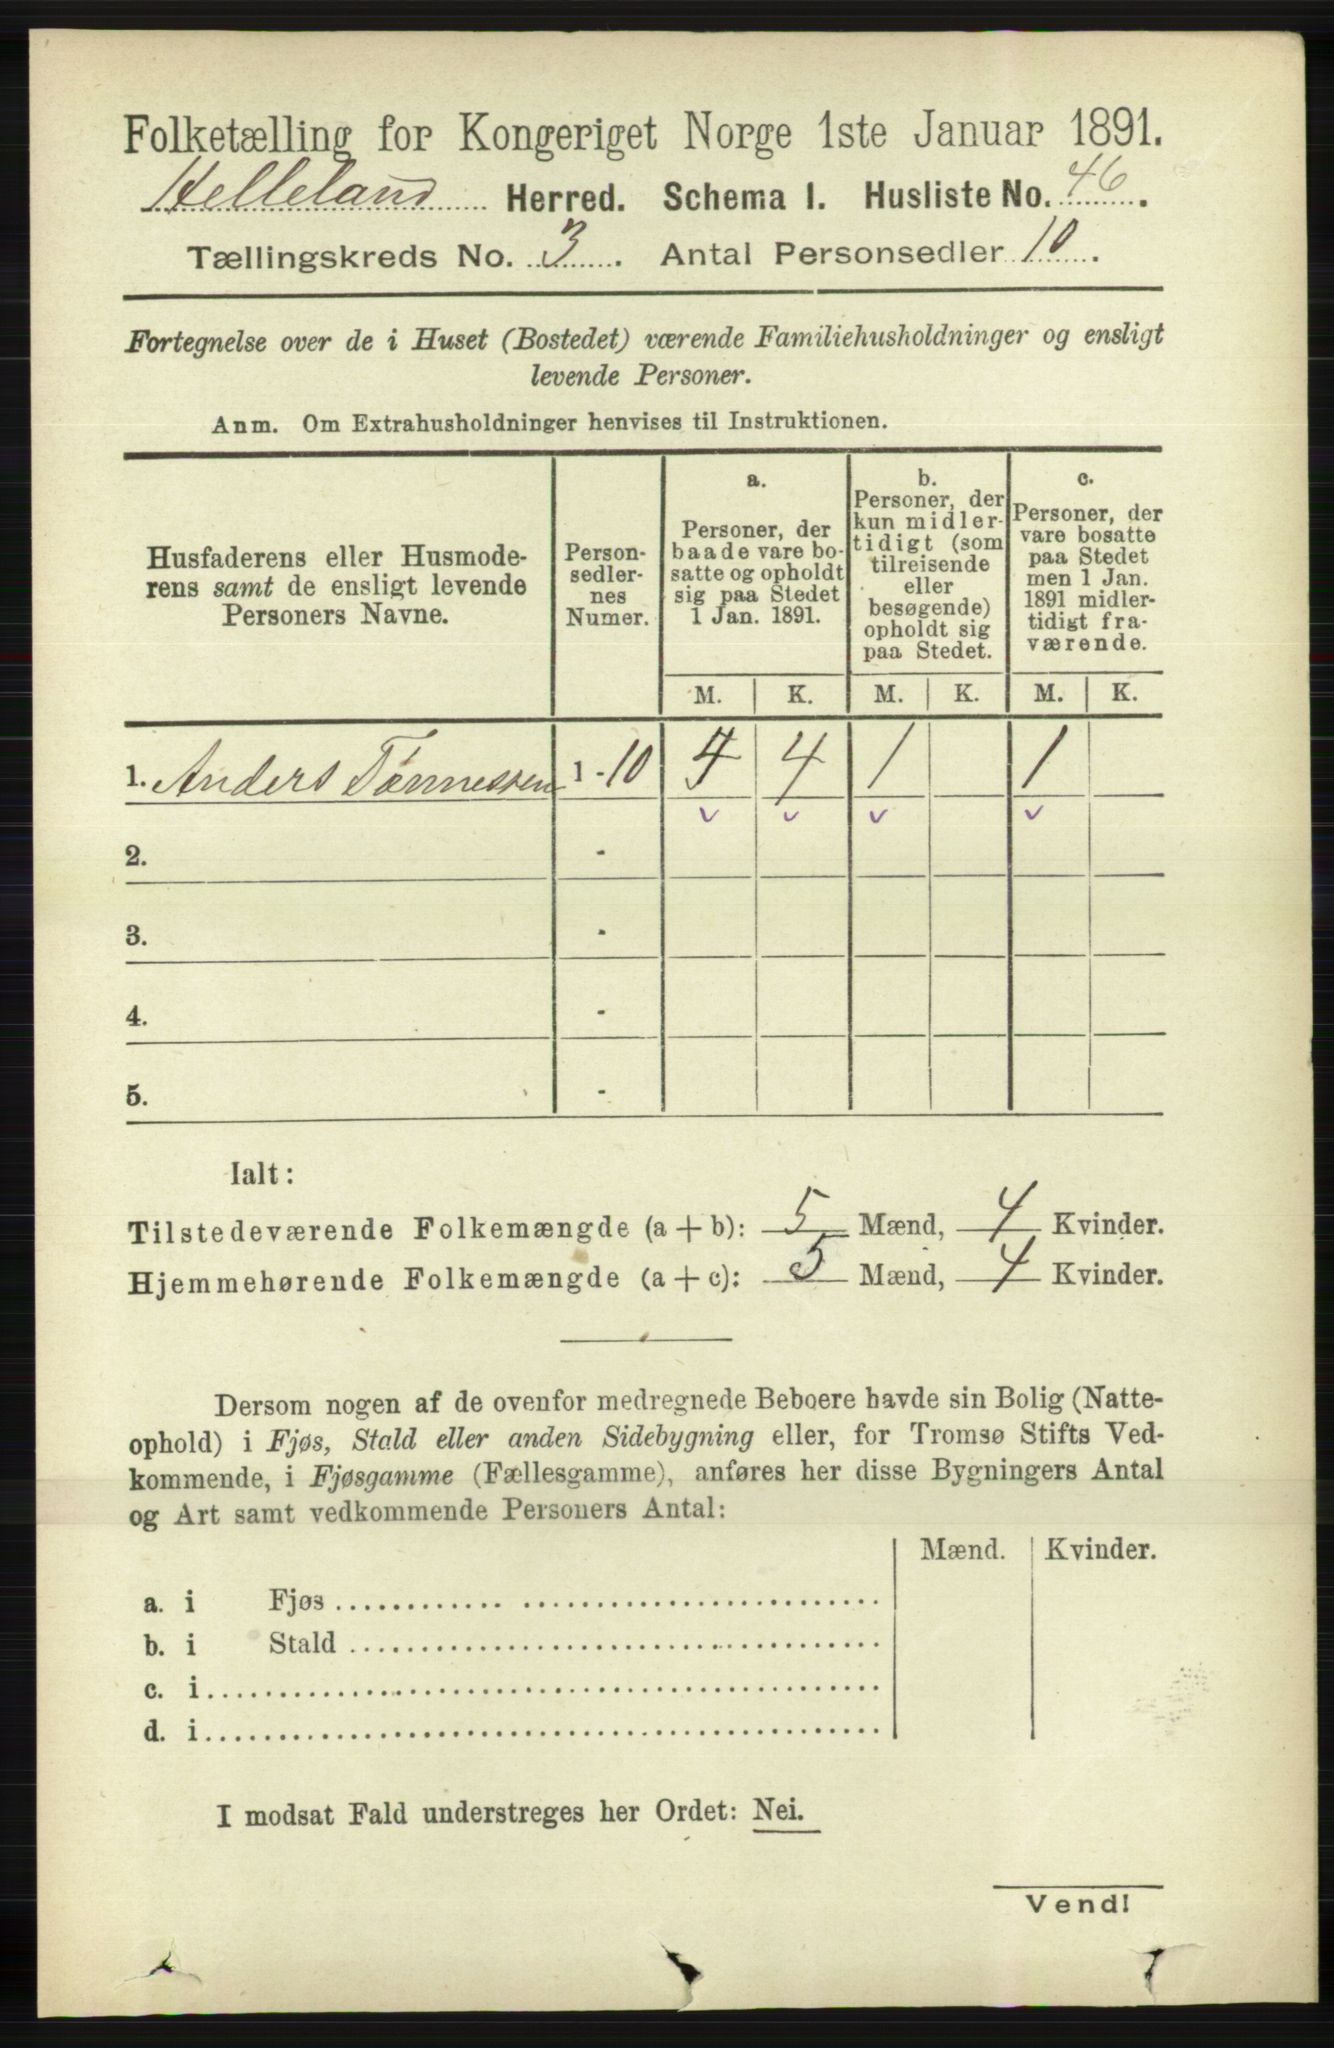 Folketælling for Kongeriget Norge 1ste Januar 1891.
Helleland Herred. Schema I. Husliste No. 46.
Tællingskreds No. 3. Antal Personsedler 10.
Fortegnelse over de i Huset (Bostedet) værende Familiehusholdninger og ensligt
levende Personer.
Anm. Om Extrahusholdninger henvises til Instruktionen.
Husfaderens eller Husmode-
rens samt de ensligt levende
Personers Navne.
Person-
sedler-
nes
Numer.
a.
Personer, der
baade vare bo-
satte og opholdt
sig paa Stedet
1 Jan. 1891.
b.
Personer, der
kun midler-
tidigt (som
tilreisende
eller
besøgende)
opholdt sig
paa Stedet.
c.
Personer, der
vare bosatte
paa Stedet
men 1 Jan.
1891 midler-
tidigt fra-
værende.
M. K. M. K. M. K.
1. Anders Tønnessen 1 - 10 4 4 1 1
2. -
3. -
4. -
5. -
Ialt:
Tilstedeværende Folkemængde (a + b): 5 Mænd, 4 Kvinder.
Hjemmehørende Folkemængde (a + c): 5 Mænd, 4 Kvinder.
Dersom nogen af de ovenfor medregnede Beboere havde sin Bolig (Natte-
ophold) i Fjøs, Stald eller anden Sidebygning eller, for Tromsø Stifts Ved-
kommende, i Fjøsgamme (Fællesgamme), anføres her disse Bygningers Antal
og Art samt vedkommende Personers Antal:
Mænd. Kvinder.
a. i Fjøs
b. i Stald
c. i
d. i
I modsat Fald understreges her Ordet: Nei.
Vend!